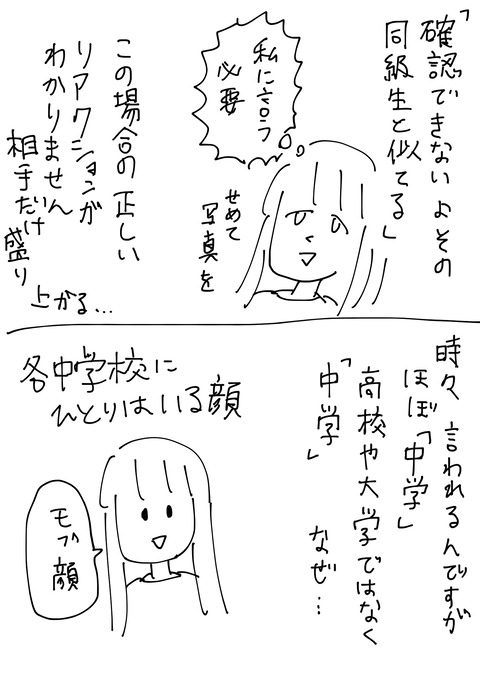 「確認できないよその
同級生と似てる」
私に言う
必要
せめて
写真を
この場合の正しい
リアクションが
わかりません
相手だけ
盛り
上がる…
時々、言われるんですが
ほぼ「中学」
高校や大学ではなく
「中学」
なぜ…
各中学校に
ひとりはいる顔
モブ顔